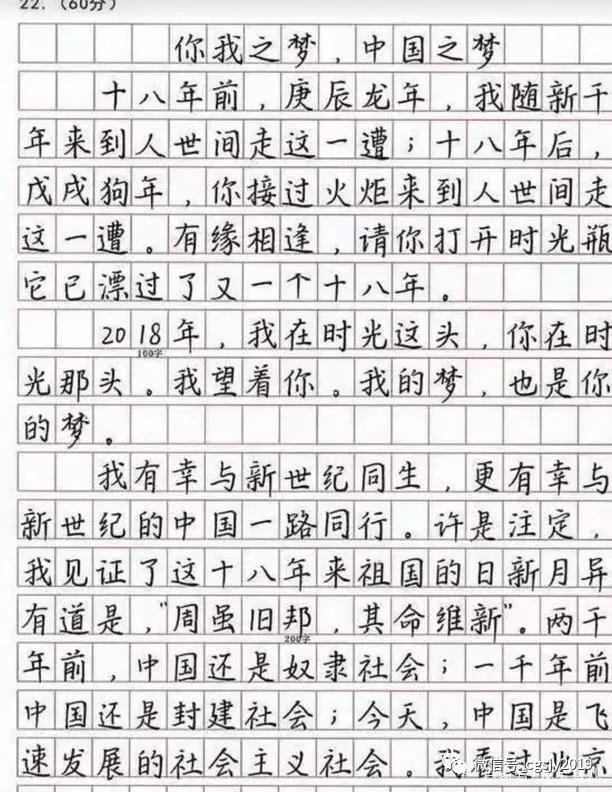 22.（60分）
你我之梦，中国之梦
十八年前，庚辰龙年，我随新千
年来到人世间走这一遭；十八年后，
戊戌狗年，你接过火炬来到人世间走
这一遭。有缘相逢，请你打开时光瓶
它已漂过了又一个十八年。
2018年，我在时光这头，你在时
100字
光那头。我望着你。我的梦，也是你
的梦。
我有幸与新世纪同生，更有幸与
新世纪的中国一路同行。许是注定，
我见证了这十八年来祖国的日新月异
有道是，"周虽旧邦，其命维新"。两千
200字
年前，中国还是奴隶社会；一千年前
中国还是封建社会；今天，中国是飞
速发展的社会主义社会。我看过北京
微信号:cgsjy2019